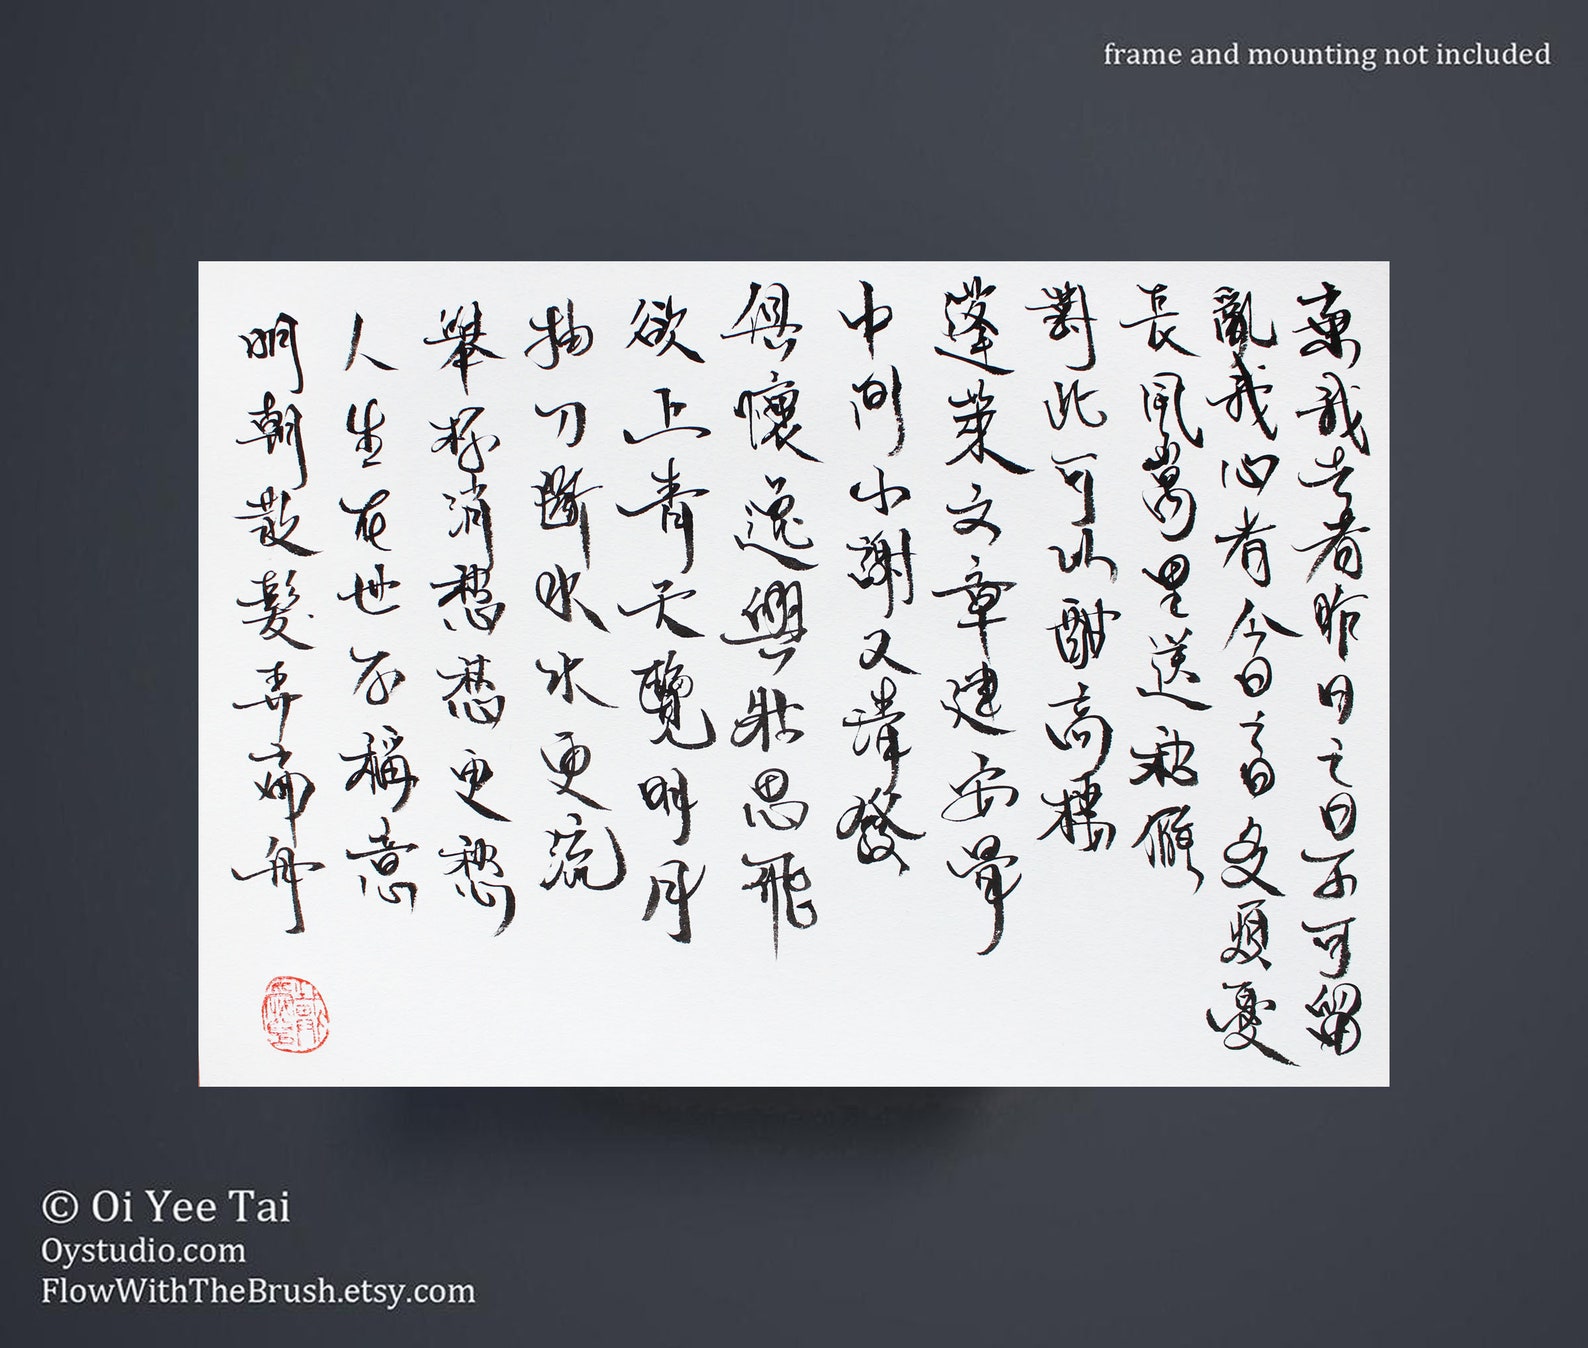 frame and mounting not included
棄我去者昨日之日不可留
亂我心者今日之日多煩憂
長風萬里送秋雁
對此可以酣高樓
蓬萊文章建安骨
中間小謝又清發
俱懷逸興壯思飛
欲上青天覽明月
抽刀斷水水更流
舉杯消愁愁更愁
人生在世不稱意
明朝散髮弄扁舟
© Oi Yee Tai
Oystudio.com
FlowWithTheBrush.etsy.com